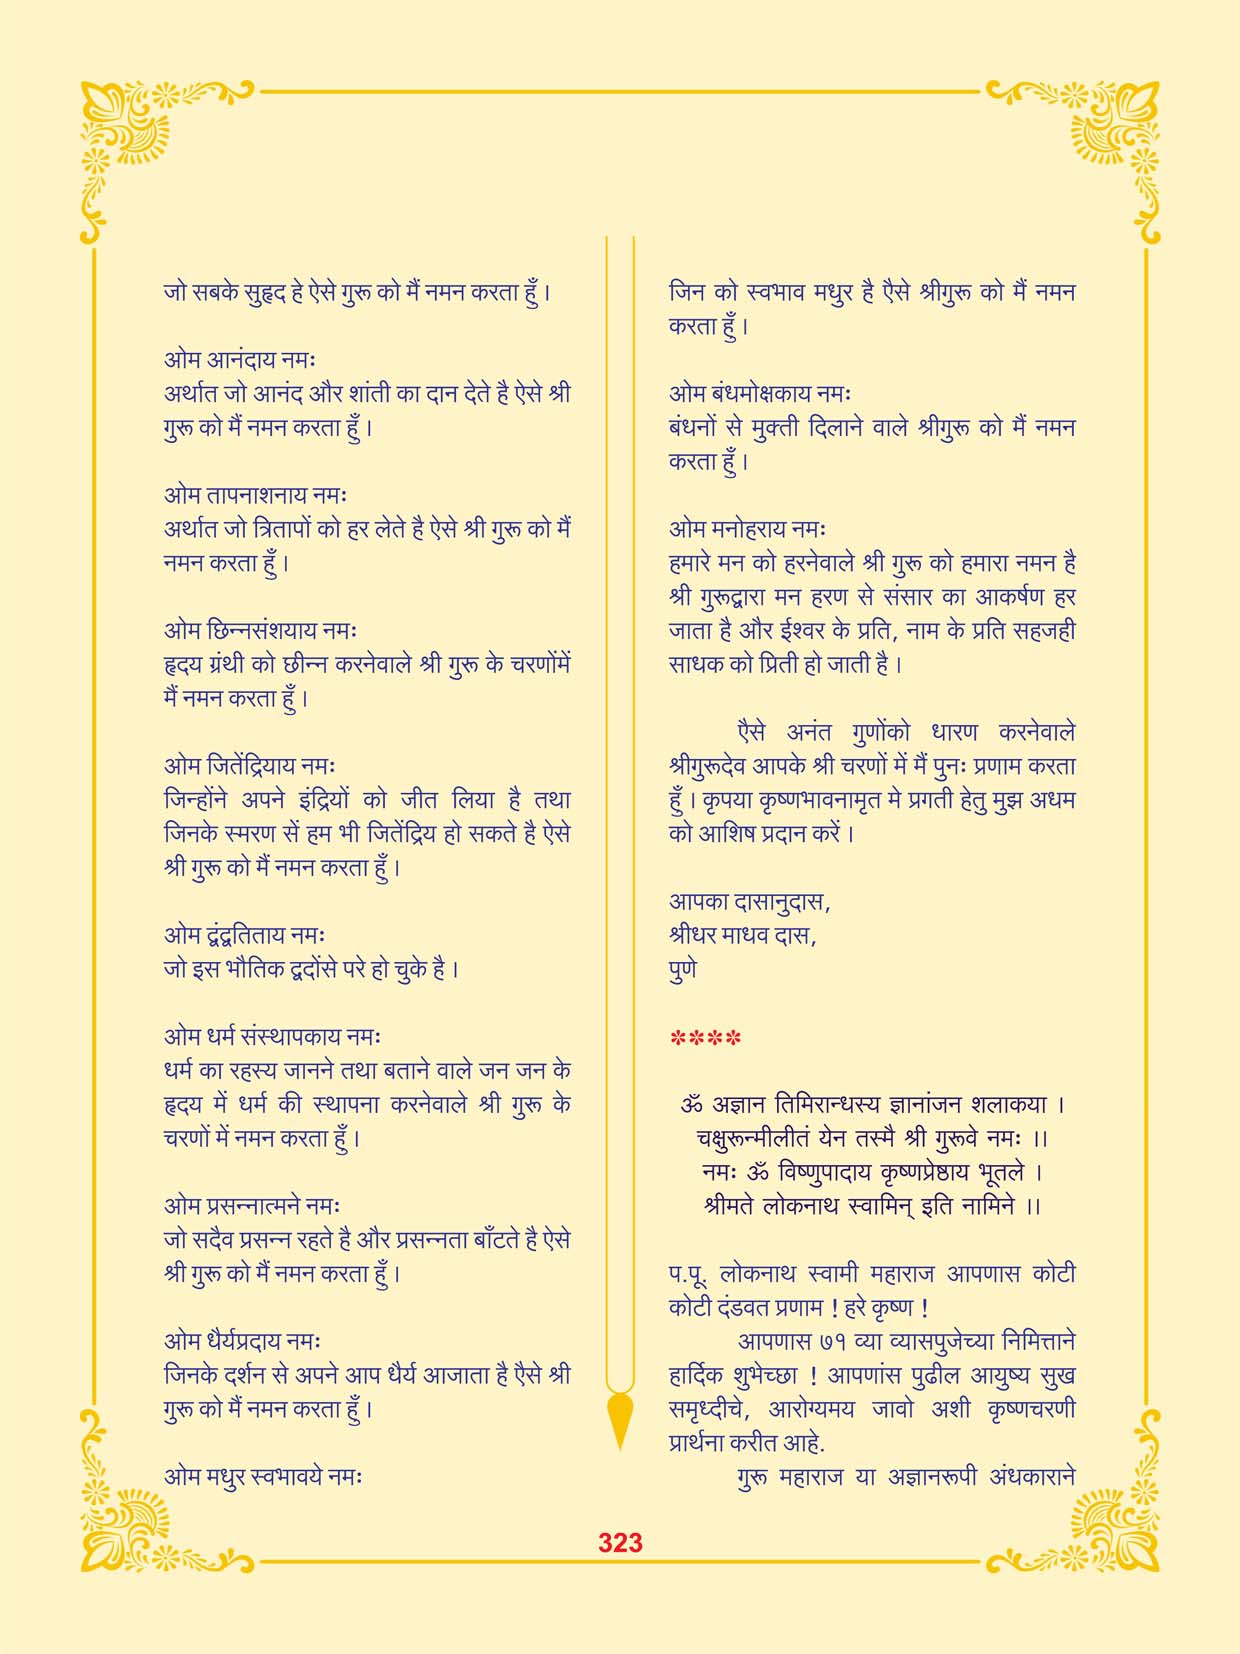 जो सबके सुहृद हे ऐसे गुरू को मैं नमन करता हुँ ।
ओम आनंदाय नमः
अर्थात जो आनंद और शांती का दान देते है ऐसे श्री
गुरू को मैं नमन करता हुँ ।
ओम तापनाशनाय नमः
अर्थात जो त्रितापों को हर लेते है ऐसे श्री गुरू को मैं
नमन करता हुँ ।
ओम छिन्नसंशयाय नमः
हृदय ग्रंथी को छीन्न करनेवाले श्री गुरू के चरणोंमें
मैं नमन करता हुँ ।
ओम जितेंद्रियाय नमः
जिन्होंने अपने इंद्रियों को जीत लिया है तथा
जिनके स्मरण सें हम भी जितेंद्रिय हो सकते है ऐसे
श्री गुरू को मैं नमन करता हुँ ।
ओम द्वंद्वतिताय नमः
जो इस भौतिक द्वदोंसे परे हो चुके है ।
ओम धर्म संस्थापकाय नमः
धर्म का रहस्य जानने तथा बताने वाले जन जन के
हृदय में धर्म की स्थापना करनेवाले श्री गुरू के
चरणों में नमन करता हुँ ।
ओम प्रसन्नात्मने नमः
जो सदैव प्रसन्न रहते है और प्रसन्नता बाँटते है ऐसे
श्री गुरू को मैं नमन करता हुँ ।
ओम धैर्यप्रदाय नमः
जिनके दर्शन से अपने आप धैर्य आजाता है एैसे श्री
गुरू को मैं नमन करता हुँ ।
ओम मधुर स्वभावये नमः
जिन को स्वभाव मधुर है एैसे श्रीगुरू को मैं नमन
करता हुँ ।
ओम बंधमोक्षकाय नमः
बंधनों से मुक्ती दिलाने वाले श्रीगुरू को मैं नमन
करता हुँ ।
ओम मनोहराय नमः
हमारे मन को हरनेवाले श्री गुरू को हमारा नमन है
श्री गुरूद्वारा मन हरण से संसार का आकर्षण हर
जाता है और ईश्वर के प्रति, नाम के प्रति सहजही
साधक को प्रिती हो जाती है ।
एैसे अनंत गुणोंको धारण करनेवाले
श्रीगुरूदेव आपके श्री चरणों में मैं पुनः प्रणाम करता
हुँ । कृपया कृष्णभावनामृत मे प्रगती हेतु मुझ अधम
को आशिष प्रदान करें ।
आपका दासानुदास,
श्रीधर माधव दास,
पुणे
****
ॐ अज्ञान तिमिरान्धस्य ज्ञानांजन शलाकया ।
चक्षुरून्मीलीतं येन तस्मै श्री गुरूवे नमः ।।
नमः ॐ विष्णुपादाय कृष्णप्रेष्ठाय भूतले ।
श्रीमते लोकनाथ स्वामिन् इति नामिने ।।
प.पू. लोकनाथ स्वामी महाराज आपणास कोटी
कोटी दंडवत प्रणाम ! हरे कृष्ण !
आपणास ७१ व्या व्यासपुजेच्या निमित्ताने
हार्दिक शुभेच्छा ! आपणांस पुढील आयुष्य सुख
समृध्दीचे, आरोग्यमय जावो अशी कृष्णचरणी
प्रार्थना करीत आहे.
गुरू महाराज या अज्ञानरूपी अंधकाराने
323